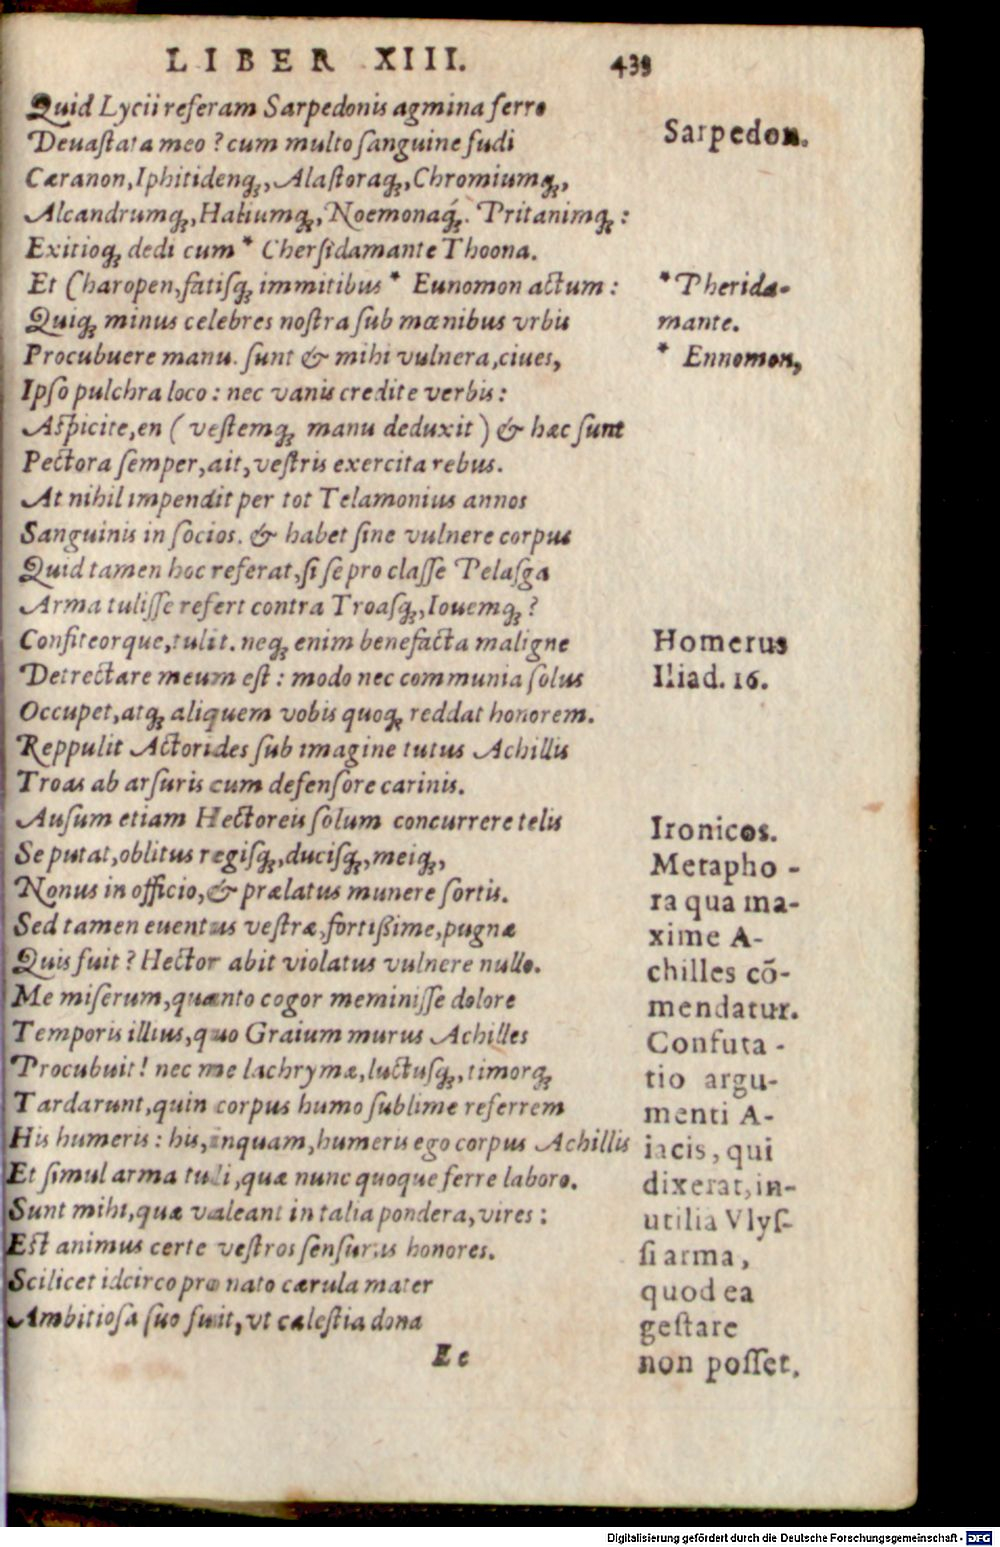 LIBER XIII. 439
Quid Lycii referam Sarpedonis agmina ferro
Deuaſtata meo? cum multo ſanguine fudi
Cæranon, Iphitidenq́;, Alaſtoraq́;, Chromiumq́;,
Alcandrumq́;, Haliumq́;, Noemonaq́;. Pritanimq́;:
Exitioq́; dedi cum * Cherſidamante Thoona.
Et Charopen, fatiſq́; immitibus * Eunomon actum:
Quiq́; minus celebres noſtra ſub mœnibus vrbis
Procubuere manu. ſunt & mihi vulnera, ciues,
Ipſo pulchra loco: nec vanis credite verbis:
Aſpicite, en (veſtemq́; manu deduxit) & hæc ſunt
Pectora ſemper, ait, veſtris exercita rebus.
At nihil impendit per tot Telamonius annos
Sanguinis in ſocios. & habet ſine vulnere corpus
Quid tamen hoc referat, ſi ſe pro claſſe Pelaſga
Arma tuliſſe refert contra Troaſq́;, Iouemq́;?
Confiteorque, tulit. neq́; enim benefacta maligne
Detrectare meum eſt: modo nec communia ſolus
Occupet, atq́; aliquem vobis quoq́; reddat honorem.
Reppulit Actorides ſub imagine tutus Achillis
Troas ab arſuris cum defenſore carinis.
Auſum etiam Hectoreis ſolum concurrere telis
Se putat, oblitus regiſq́;, duciſq́;, meiq́;,
Nonus in officio, & prælatus munere ſortis.
Sed tamen euentus veſtræ, fortiſſime, pugnæ
Quis fuit? Hector abit violatus vulnere nullo.
Me miſerum, quanto cogor meminiſſe dolore
Temporis illius, quo Graium murus Achilles
Procubuit! nec me lachrymæ, luctuſq́;, timorq́;
Tardarunt, quin corpus humo ſublime referrem
His humeris: his, inquam, humeris ego corpus Achillis
Et ſimul arma tuli, quæ nunc quoque ferre laboro.
Sunt mihi, quæ valeant in talia pondera, vires:
Eſt animus certe veſtros ſenſurus honores.
Scilicet idcirco pro nato cærula mater
Ambitioſa ſuo fuit, vt cæleſtia dona
Ee
Sarpedon.
* Therida-
mante.
* Ennomon,
Homerus
Iliad. 16.
Ironicos.
Metapho-
ra qua ma-
xime A-
chilles cõ-
mendatur.
Confuta-
tio argu-
menti A-
iacis, qui
dixerat, in-
utilia Vlyſ-
ſi arma,
quod ea
geſtare
non poſſet.
Digitalisierung gefördert durch die Deutsche Forschungsgemeinschaft - DFG